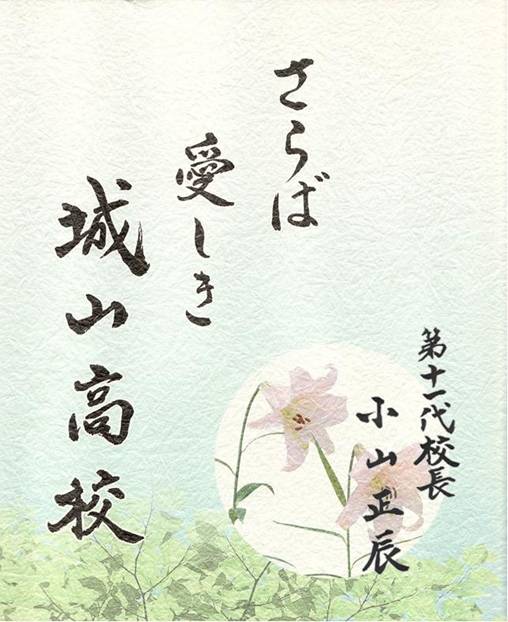 さらば
愛しき
城山高校
第十一代校長
小山正辰